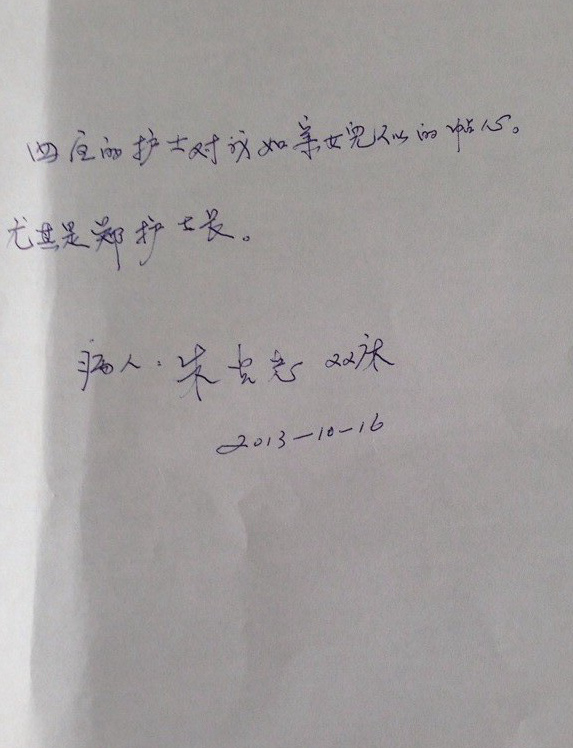 四庄的护士对我如亲女儿似的帖心。
尤其是郑护士长。
病人:朱 志 22床
2013-10-16